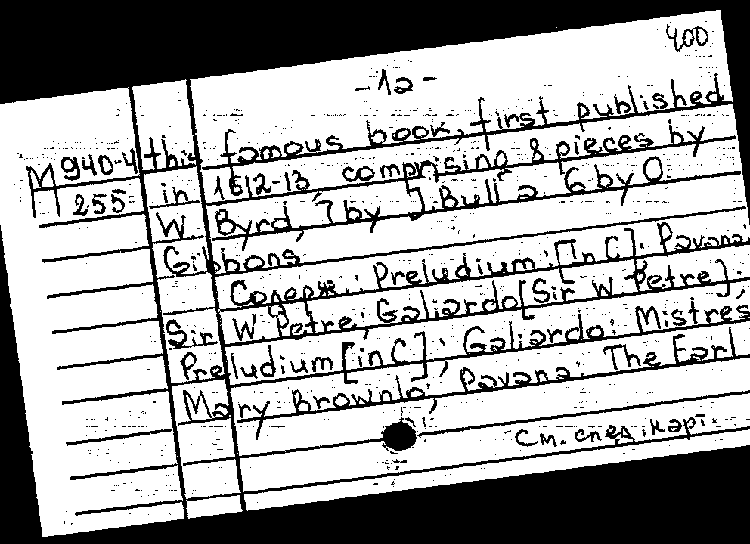 400
-1a-
М 940-4 this famous book, first published
255 in 1612-13, comprising 8 pieces by
W. Byrd, 7 by J. Bull a. 6 by O.
Gibbons.
Содерж.: Preludium: [In C]; Pavana:
Sir W. Petre; Galiardo [Sir W Petre];
Preludium [in C]; Galiardo: Mistres
Mary Brownlo; Pavana: The Earl
См. след. карт.